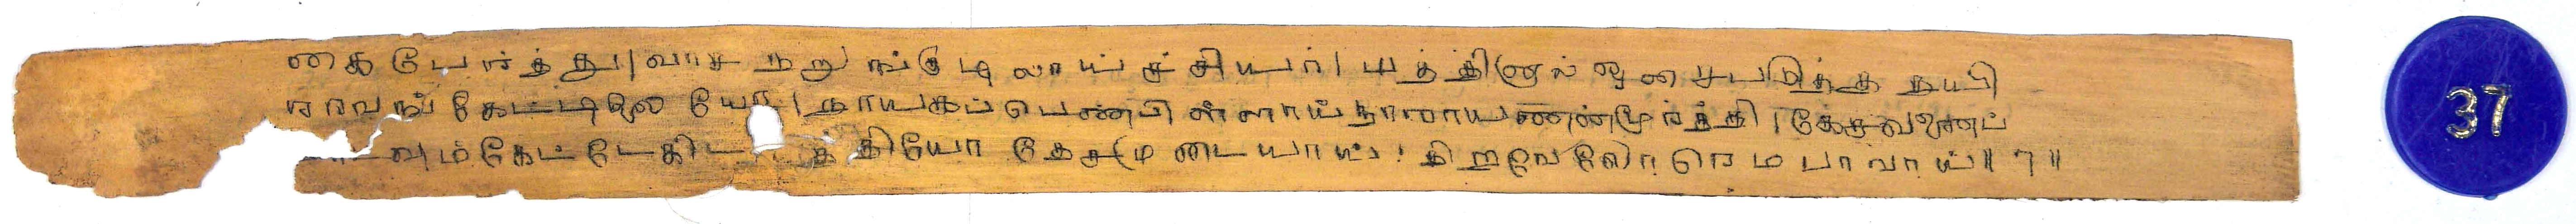 கை பேர்த்து|வாச நறுங்குழலாய்ச்சியர்|மத்தினால் ஓசைபடுத்த தயி
ரரவங் கேட்டிலையோ|நாயகப்பெண்பிள்ளாய் நாராயணன்மூர்த்தி|கேசவனைப்
டவும் கேட்டேகிட த்தியோ தேசமுடையாய்|திறவேலோரெம்பாவாய்||௭||
37